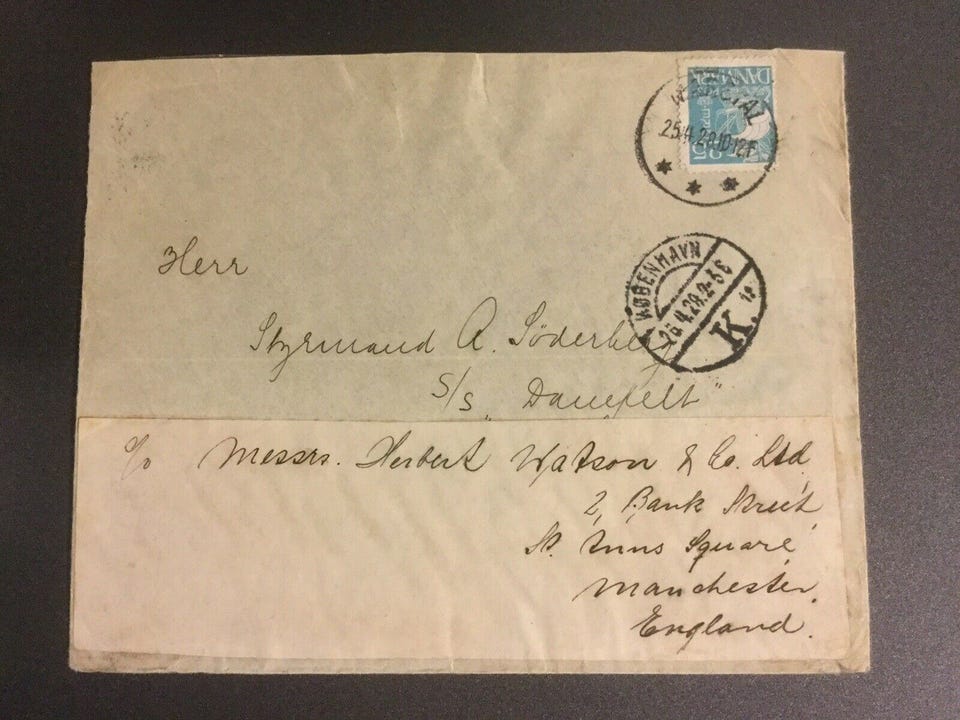 DANMARK
25
KØBENHAVN
K.
Herr
Styrmand A. Söderberg
S/S "Danefelt"
c/o Messrs. Herbert Watson & Co. Ltd,
2, Bank Street,
St. Anns Square,
Manchester,
England.